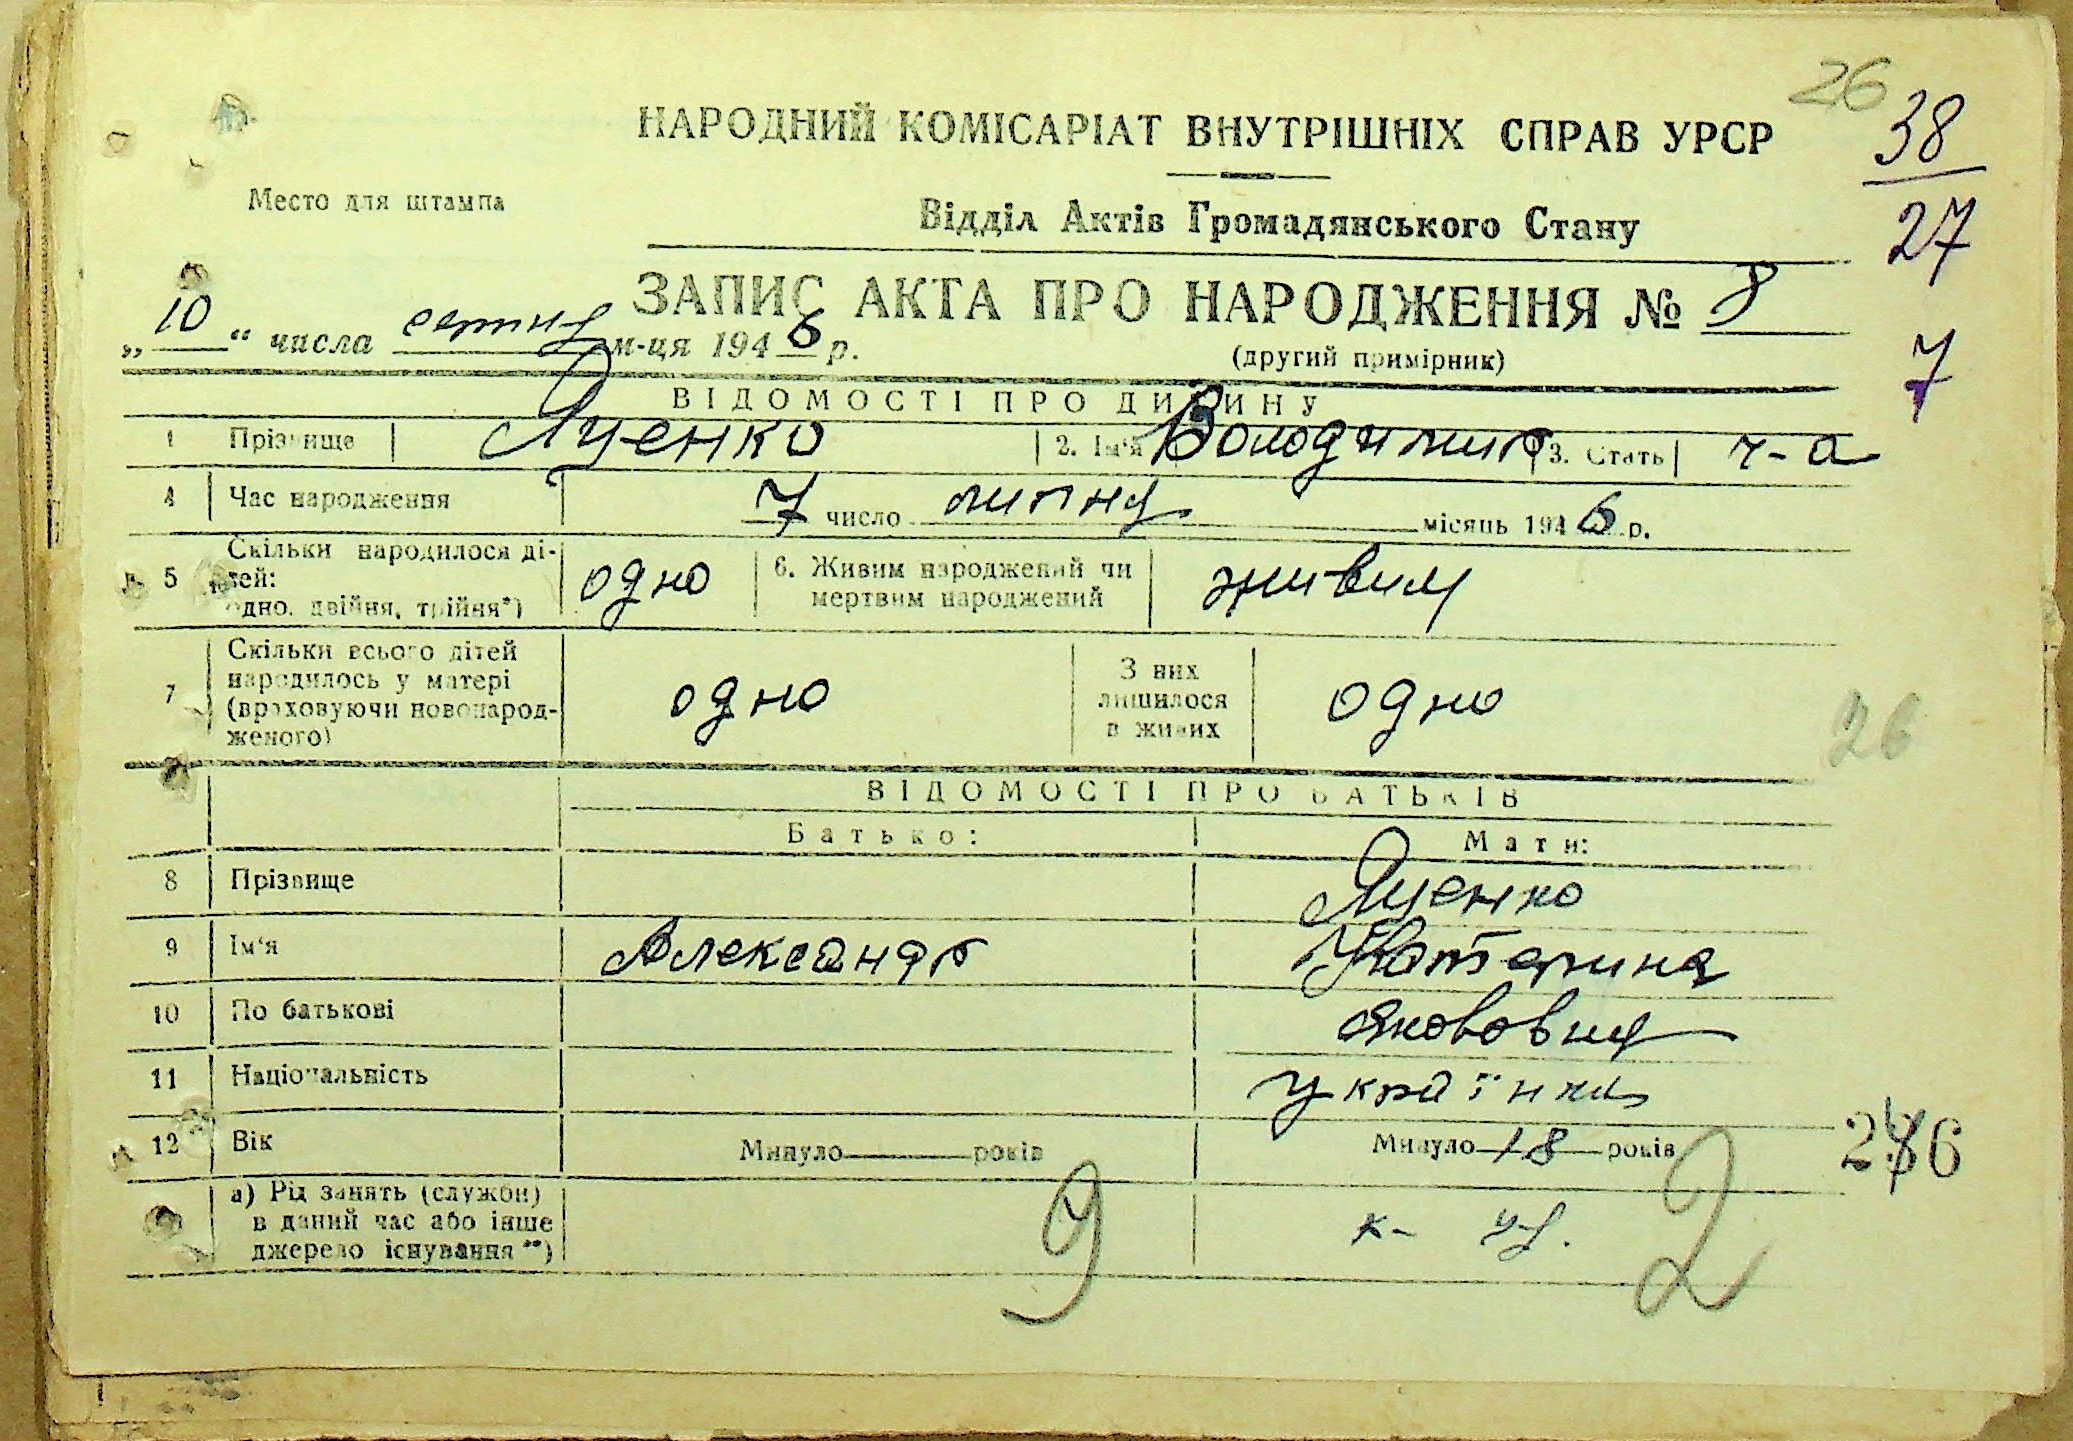 26
38
НАРОДНИЙ КОМІСАРІАТ ВНУТРІШНІХ СПРАВ УРСР
Место для штампа
Відділ Актів Громадянського Стану
27
ЗАПИС АКТА ПРО НАРОДЖЕННЯ № 8
„10“ числа серпня м-ця 1946 р.
(другий примірник)
7
ВІДОМОСТІ ПРО ДИТИНУ
1 Прізвище Луценко 2. Ім'я Володимир 3. Стать ч-а
4 Час народження 7 число липня місяць 1946 р.
5 Скільки народилося ді-
тей:
одно, двійня, трійня*) одно 6. Живим народжений чи
мертвим народжений живим
7 Скільки всього дітей
народилось у матері
(враховуючи новонарод-
женого) одно З них
лишилося
в живих одно
26
ВІДОМОСТІ ПРО БАТЬКІВ
Батько: Мати:
8 Прізвище Луценко
9 Ім'я Александр Катерина
10 По батькові Якововна
11 Національність українка
12 Вік Минуло років Минуло 18 років
а) Рід занять (служби)
в даний час або інше
джерело існування**)
9 2